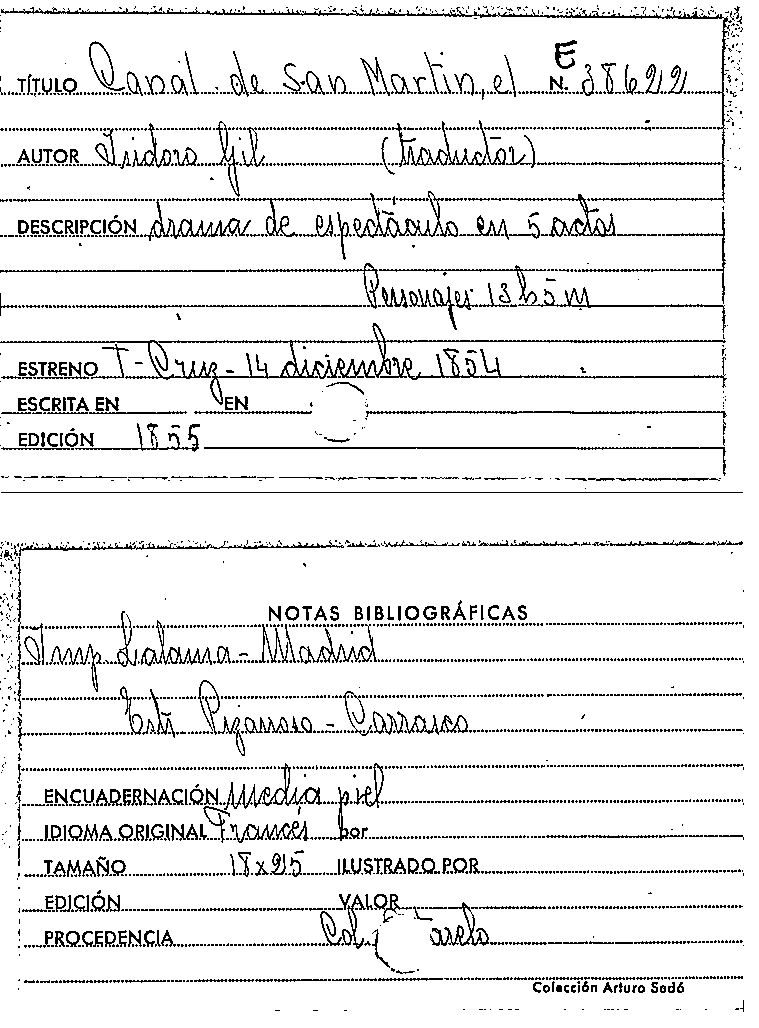 TÍTULO Canal de San Martin, el E N. 38622
AUTOR Isidoro Gil (traductor)
DESCRIPCIÓN drama de espectáculo en 5 actos
Personajes 13 h 5 m
ESTRENO T-Cruz-14 diciembre 1854
ESCRITA EN EN
EDICIÓN 1855
NOTAS BIBLIOGRÁFICAS
Imp Lalama-Madrid
Carrasco
ENCUADERNACIÓN Media piel
IDIOMA ORIGINAL Francés por
TAMAÑO 18x25 ILUSTRADO POR
EDICIÓN VALOR
PROCEDENCIA Col.
Colección Arturo Sedó